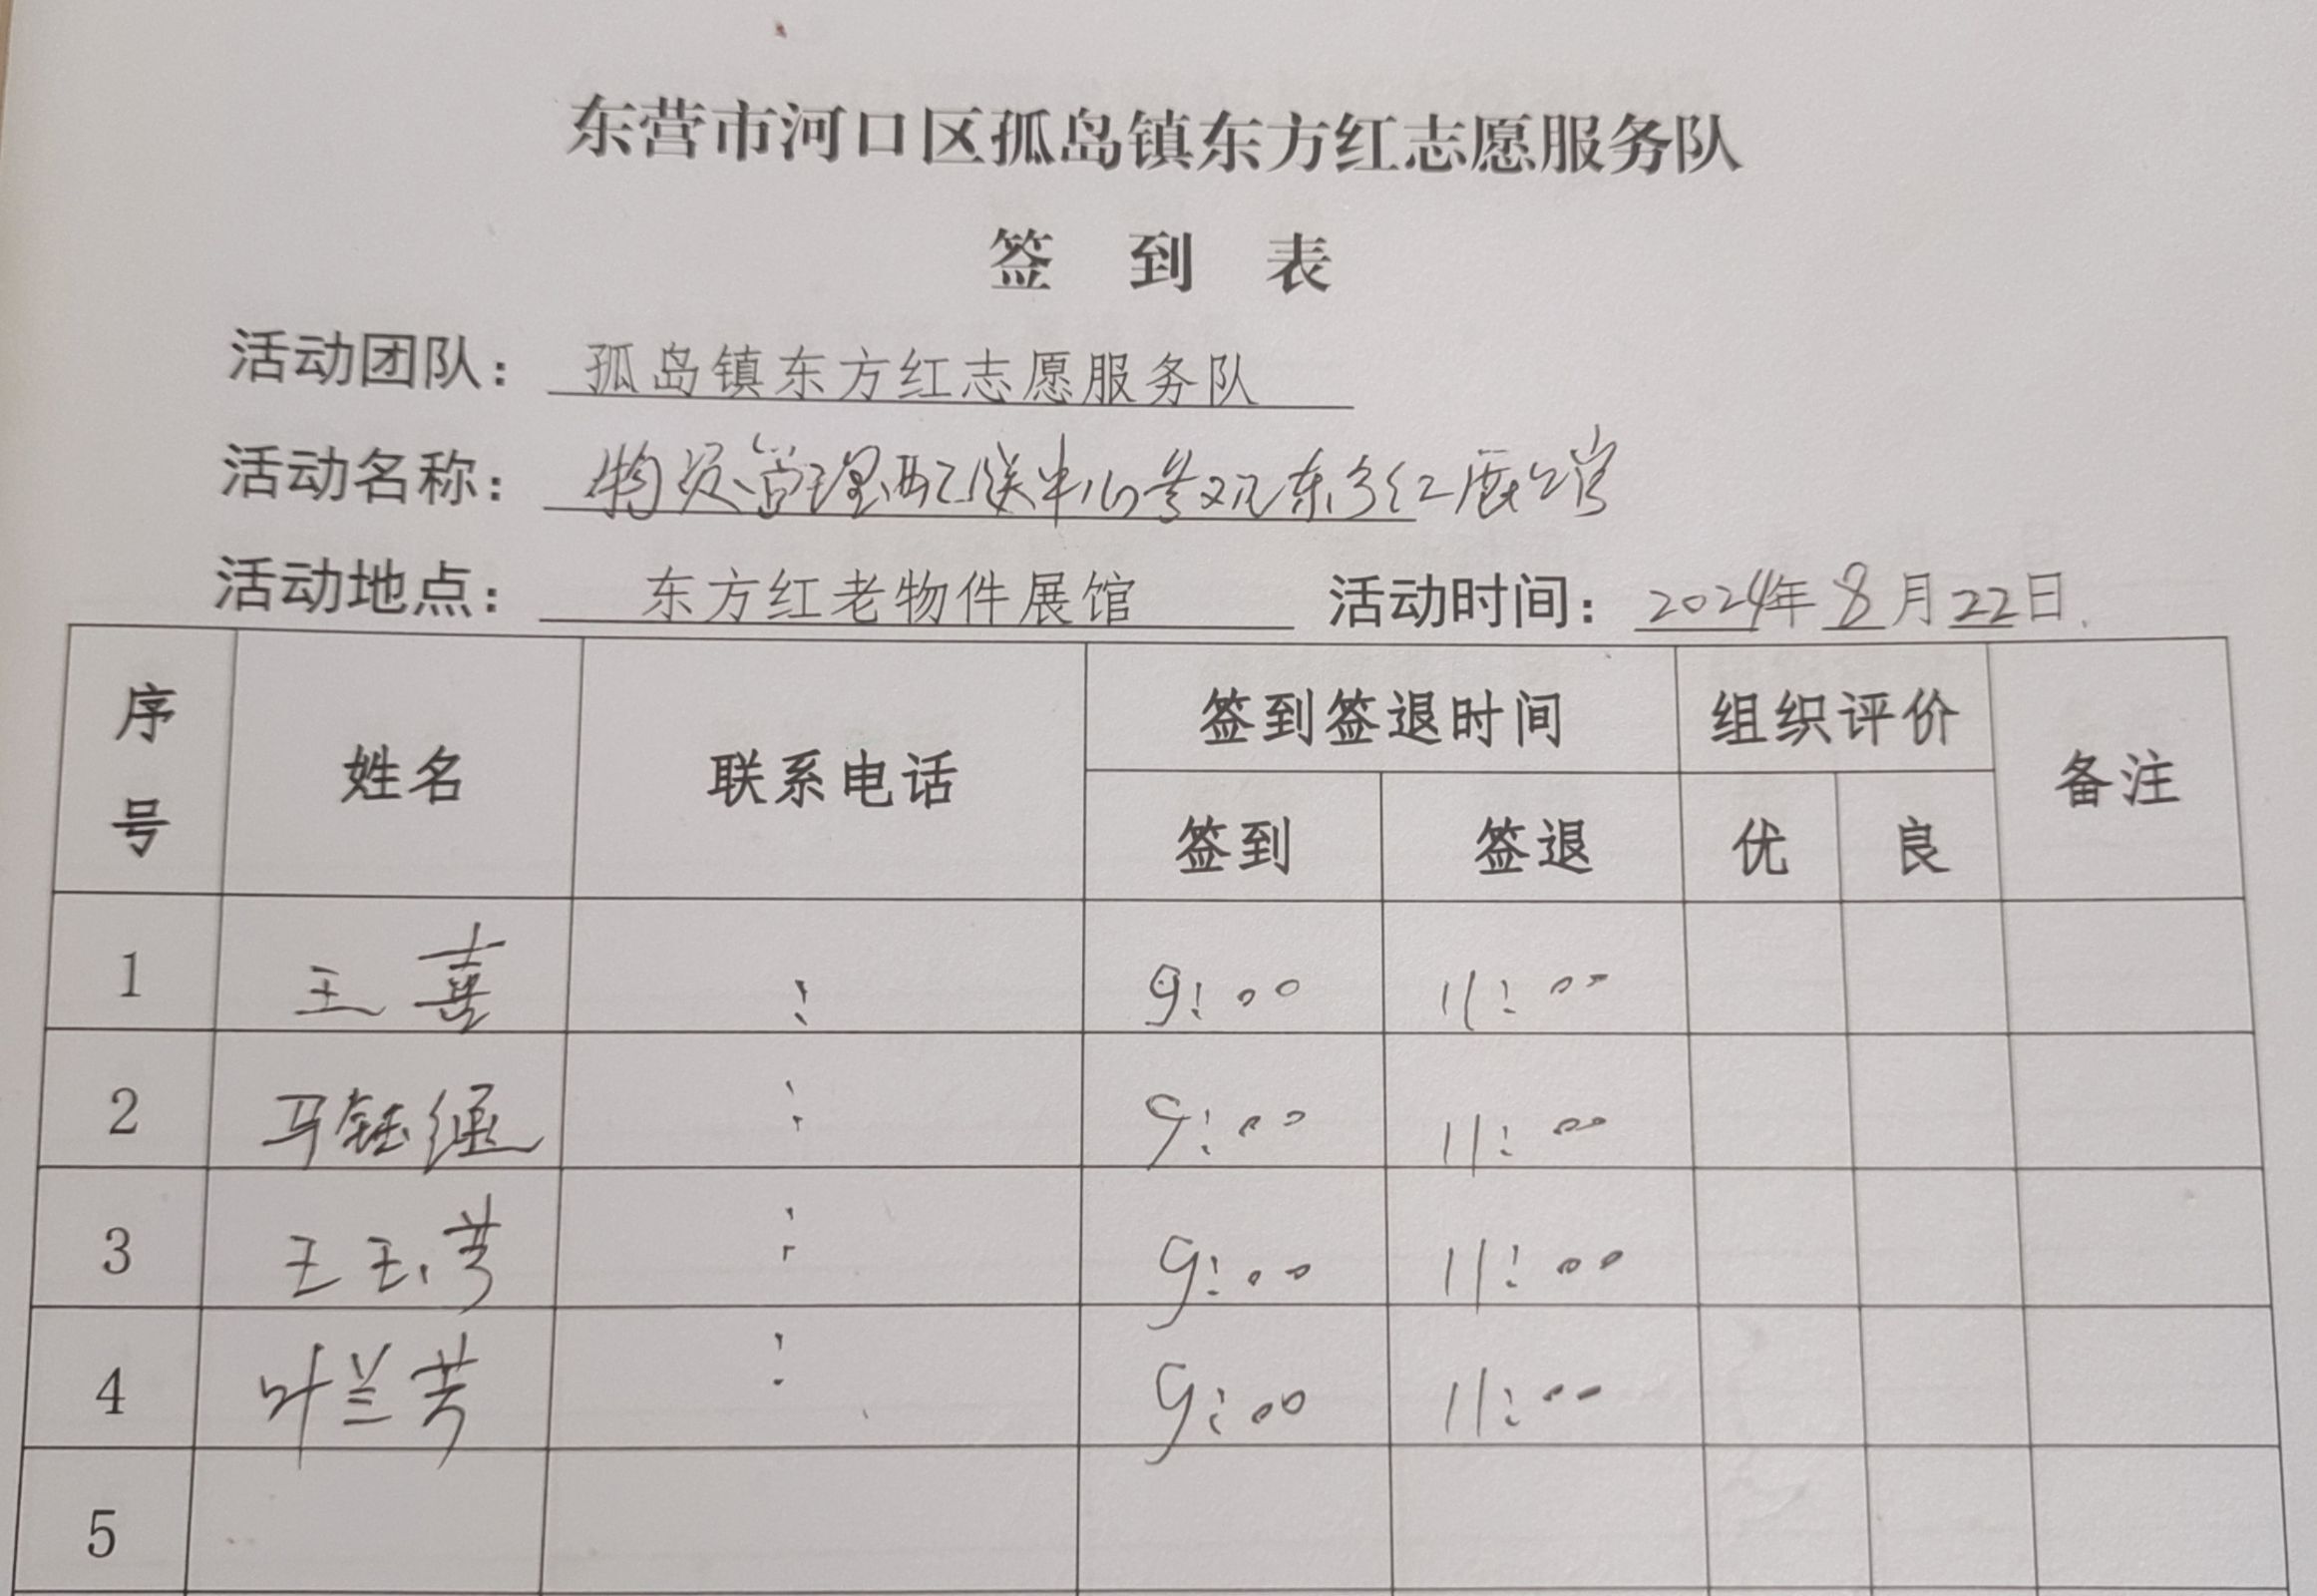 东营市河口区孤岛镇东方红志愿服务队
签 到 表
活动团队：孤岛镇东方红志愿服务队
活动名称：物资管理配送中心参观东方红展馆
活动地点：东方红老物件展馆 活动时间：2024年8月22日
序号 姓名 联系电话 签到签退时间 组织评价 备注
签到 签退 优 良
1 王喜 9:00 11:00
2 马钰涵 9:00 11:00
3 王玉芳 9:00 11:00
4 叶兰芳 9:00 11:00
5